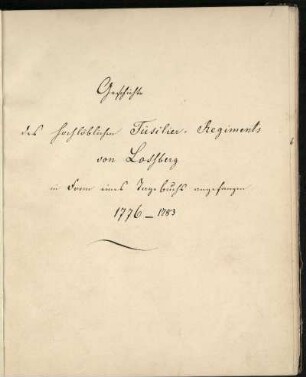 Geschichte
des hochlöblichen Füsilier-Regiments
von Lossberg
in Form eines Tagebuchs angefangen
1776 – 1783